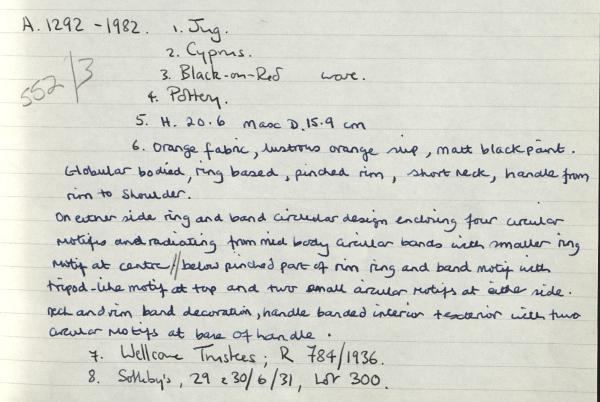 A. 1292 - 1982. 1. Jug.
2. Cyprus.
552/3
3. Black-on-Red ware.
4. Pottery.
5. H. 20.6 max D. 15.9 cm
6. Orange fabric, lustrous orange slip, matt black paint.
Globular bodied, ring based, pinched rim, short neck, handle from
rim to shoulder.
On either side ring and band circular design enclosing four circular
motifs and radiating from mid body circular bands with smaller ring
motif at centre // below pinched part of rim ring and band motif with
tripod-like motif at top and two small circular motifs at either side.
neck and rim band decoration, handle banded interior + exterior with two
circular motifs at base of handle.
7. Wellcome Trustees; R 784/1936.
8. Sotheby's, 29 & 30/6/31, Lot 300.